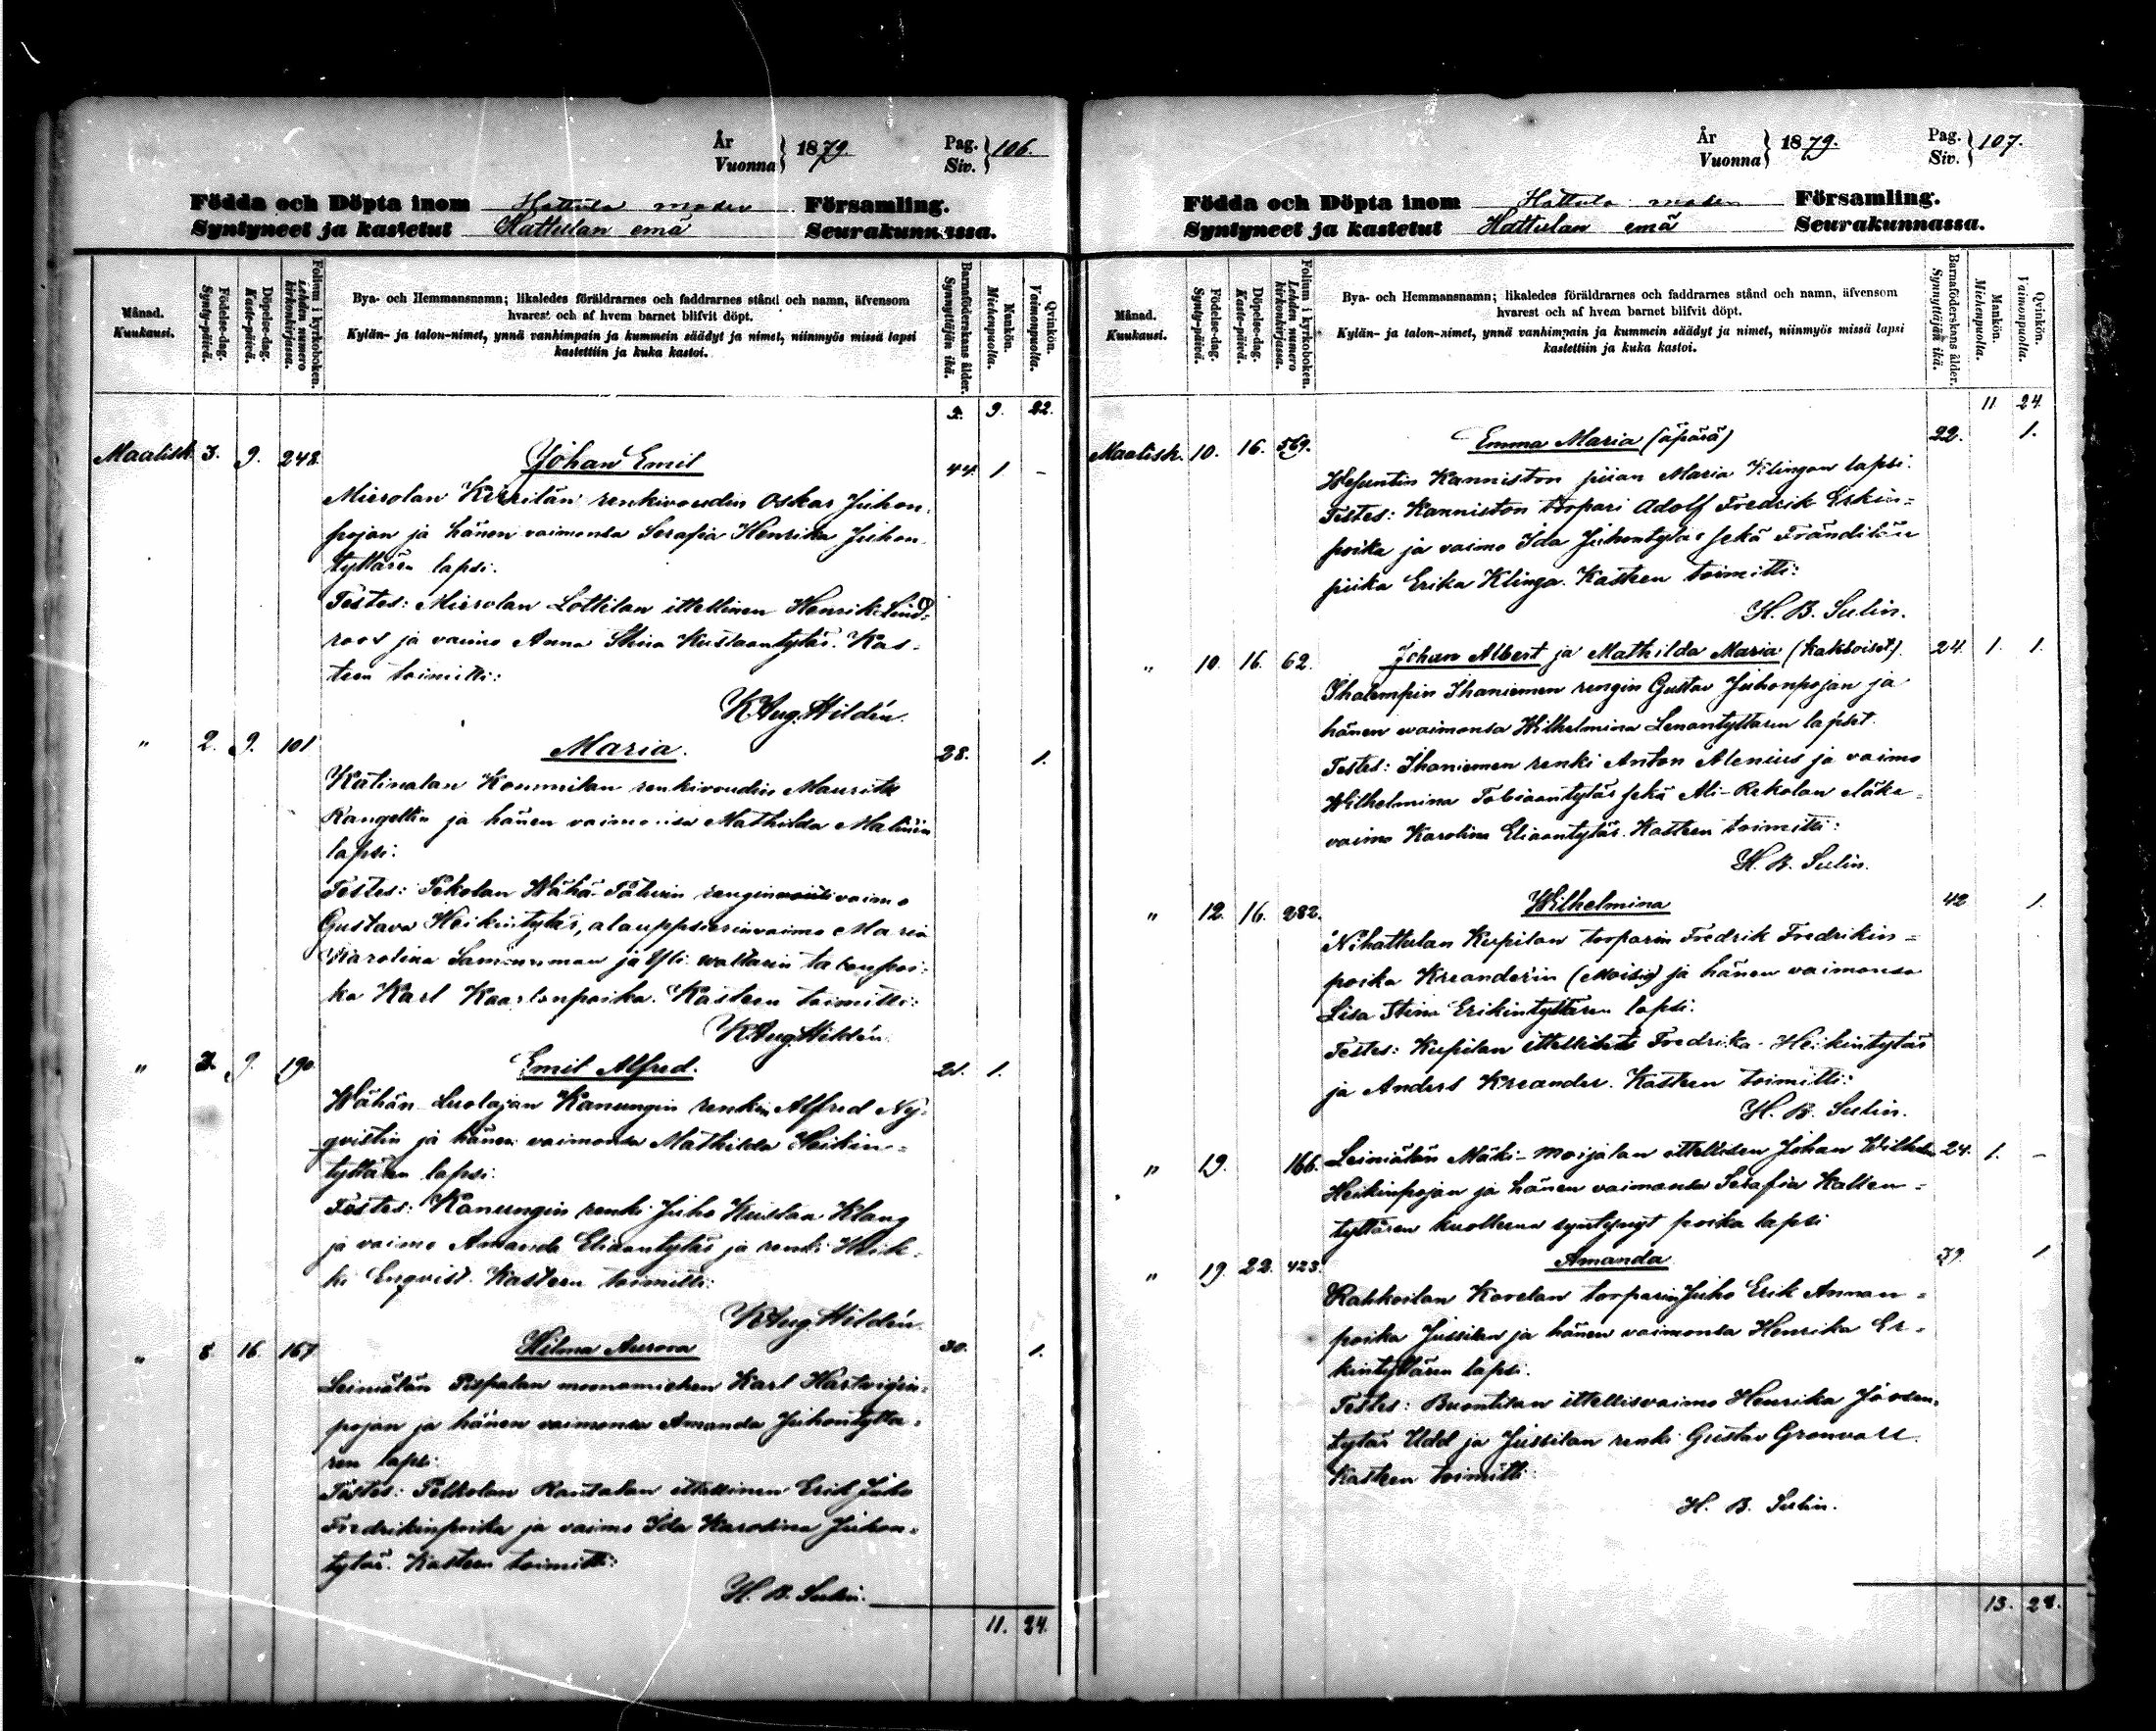 År
Vuonna } 1879.
Pag.
Siv. } 106.
Födda och Döpta inom Hattula moder Församling.
Syntyneet ja kastetut Hattulan emä Seurakunnassa.
Månad.
Kuukausi.
Födelse-dag.
Synty-päivä.
Döpelse-dag.
Kaste-päivä.
Folium i kyrkoboken.
Lehden numero
kirkonkirjassa.
Bya- och Hemmansnamn; likaledes föräldrarnes och faddrarnes stånd och namn, äfvensom
hvarest och af hvem barnet blifvit döpt.
Kylän- ja talon-nimet, ynnä vanhimpain ja kummein säädyt ja nimet, niinmyös missä lapsi
kastettiin ja kuka kastoi.
Barnaföderskans ålder.
Synnyttäjän ikä.
Mankön.
Miehenpuolta.
Qvinkön.
Vaimonpuolta.
9. 22.
Maalisk. 3. 9. 248. Johan Emil 44. 1 -
Mierolan renkivoudin Oskar Juhon
pojan ja hänen vaimonsa Serafia Henrika Juhon
tyttären lapsi.
Testes: Mierolan Lottilan ittellinen Henrik Lind=
roos ja vaimo Anna Stina Kustaantytär. Kas-
teen toimitti:
K Aug. Hildén.
" 2. 9. 101 Maria. 28. 1.
Katinalan renkivoudin Maurits
ja hänen vaimonsa Mathilda
lapsi:
Testes: Pekolan Wähä- vaimo
Gustava Heikintytär, vaimo Maria
Karolina ja
ka Karl Kaarlonpoika. Kasteen toimitti:
K Aug. Hildén
" 9. 190 Emil Alfred. 21. 1.
Wähän Luolajan Kanungin renkin Alfred Ny-
qvistin ja hänen vaimonsa Mathilda Heikin=
tyttären lapsi:
Testes: Kanungin renki Juho Kustaa Klang
ja vaimo Amanda Eliaantytär ja renki Heik-
ki Enqvist. Kasteen toimitti:
K Aug. Hildén.
" 8. 16. 167 Hilma Aurora 30. 1.
Leiniälän Pispalan Karl Hartvigin=
pojan ja hänen vaimonsa Amanda Juhontyttä=
ren lapsi:
Testes: Pelkolan Rantalan ittellinen Erik Juho
Fredrikinpoika ja vaimo Ida Karolina Juhon=
tytär. Kasteen toimitti:
H. B. Sulin.
11. 24.
År
Vuonna } 1879.
Pag.
Siv. } 107.
Födda och Döpta inom Hattula moder Församling.
Syntyneet ja kastetut Hattulan emä Seurakunnassa.
Månad.
Kuukausi.
Födelse-dag.
Synty-päivä.
Döpelse-dag.
Kaste-päivä.
Folium i kyrkoboken.
Lehden numero
kirkonkirjassa.
Bya- och Hemmansnamn; likaledes föräldrarnes och faddrarnes stånd och namn, äfvensom
hvarest och af hvem barnet blifvit döpt.
Kylän- ja talon-nimet, ynnä vanhimpain ja kummein säädyt ja nimet, niinmyös missä lapsi
kastettiin ja kuka kastoi.
Barnaföderskans ålder.
Synnyttäjän ikä.
Mankön.
Miehenpuolta.
Qvinkön.
Vaimonpuolta.
11 24.
Maalisk. 10. 16. 569. Emma Maria (äpärä) 22. 1.
Wesuntin Kanniston piian Maria Klingan lapsi.
Testes: Kanniston torpari Adolf Fredrik Erkin=
poika ja vaimo Ida Juhontytär sekä Frändilän
piika Erika Klinga. Kasteen toimitti:
H. B. Sulin.
" 10. 16. 62. Johan Albert ja Mathilda Maria (kaksoiset) 24. 1. 1.
Ihalempin Ihaniemen rengin Gustav Juhonpojan ja
hänen waimonsa Wilhelmina Lenantyttären lapset.
Testes: Ihaniemen renki Anton Alenius ja vaimo
Wilhelmina Tobiaantytär sekä Ali-Rekolan eläke=
vaimo Karolina Eliaantytär. Kasteen toimitti:
H. B. Sulin.
" 12. 16. 282. Wilhelmina 42 1.
Nihattulan Kupilan torparin Fredrik Fredrikin=
poika Kreanderin (Moisio) ja hänen vaimonsa
Lisa Stina Erikintyttären lapsi.
Testes: Kupilan Fredrika Heikintytär
ja Anders Kreander. Kasteen toimitti:
H. B. Sulin.
" 19. 166. Leiniälän Mäki-Moijalan ittellisen Johan Wilhelm 24. 1. -
Heikinpojan ja hänen vaimonsa Serafia Kallen=
tyttären kuolleena syntynyt poika lapsi
" 19. 22. 423. Amanda 39. 1
Rahkoilan Kavelan torparin Juho Erik Annan=
poika Jussilan ja hänen vaimonsa Henrika Er=
kintyttären lapsi.
Testes: ittellisvaimo Henrika Joosen=
tytär Udd ja Jussilan renki Gustav Gronvall.
Kasteen toimitti:
H. B. Sulin.
13. 28.